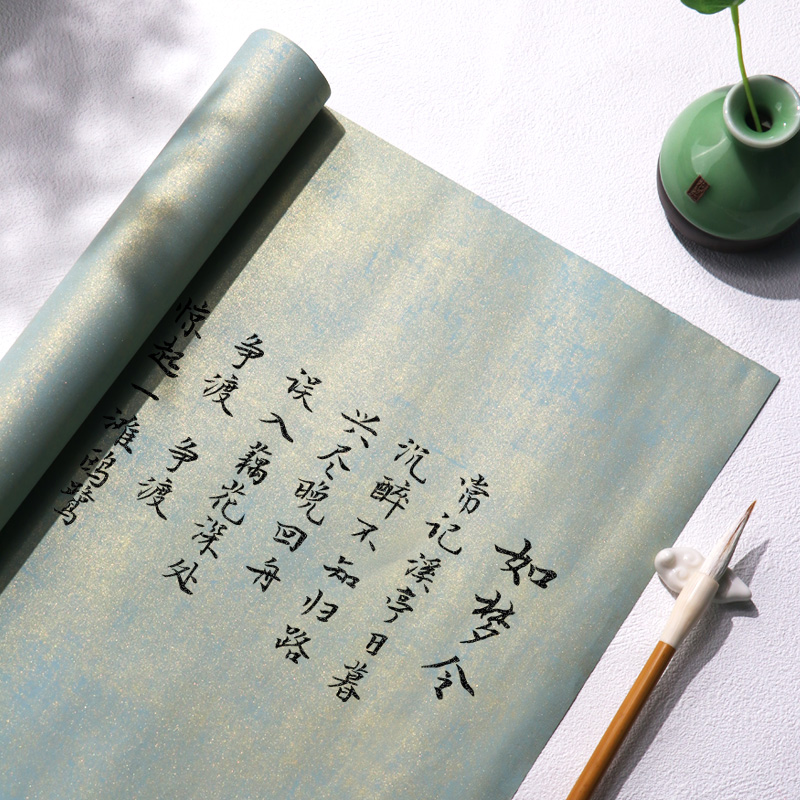 如梦令
常记溪亭日暮
沉醉不知归路
兴尽晚回舟
误入藕花深处
争渡 争渡
惊起一滩鸥鹭